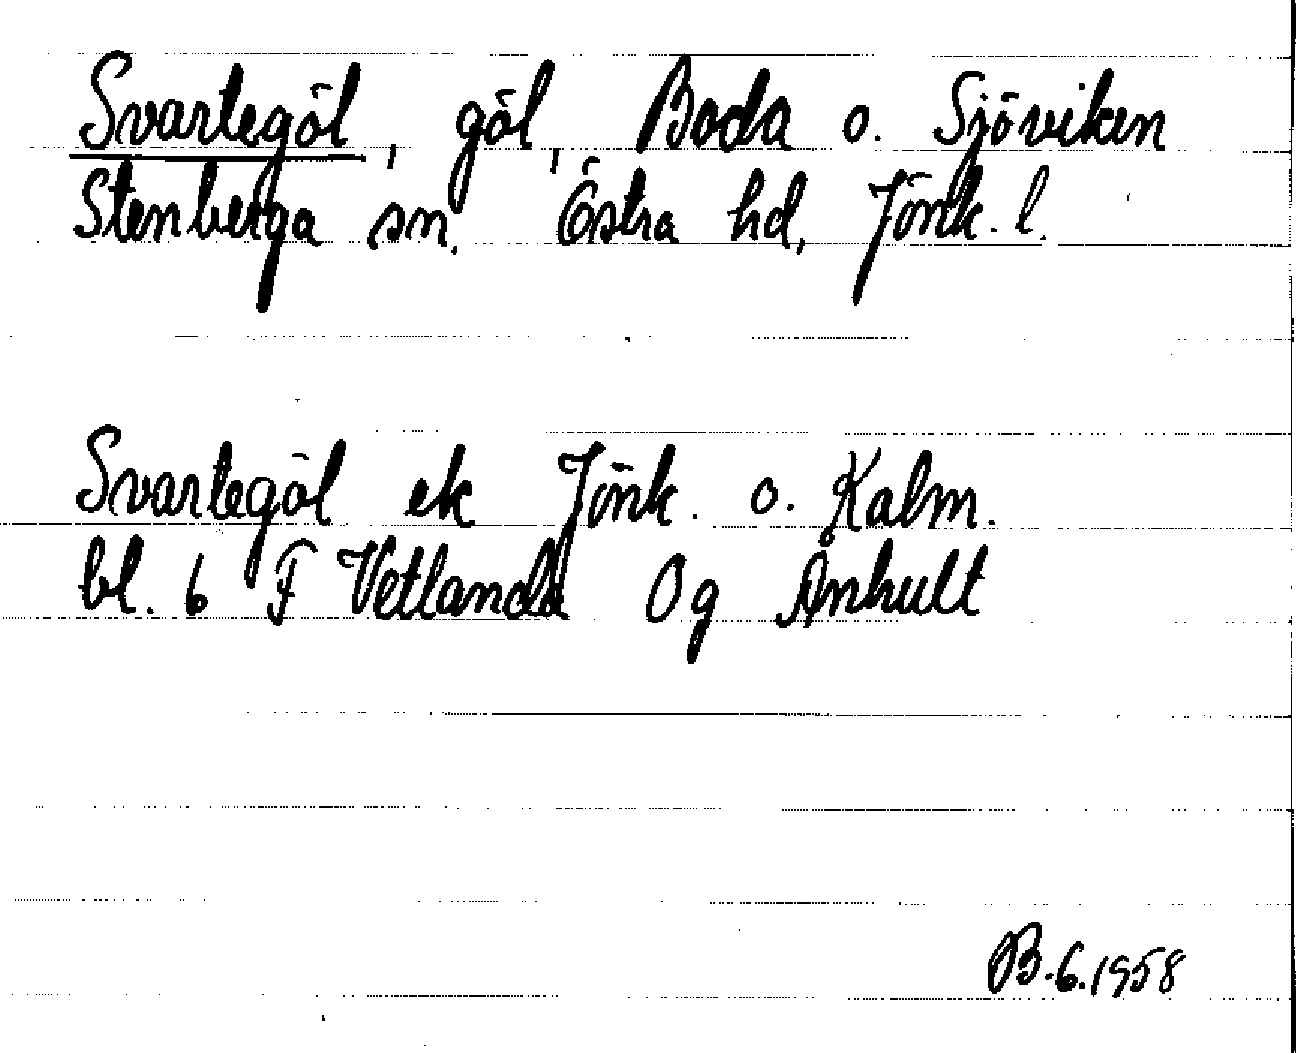 Svartegöl, göl, Boda o. Sjöviken
Stenberga sn. Östra hd, Jönk. l.
Svartegöl ek Jönk. o. Kalm.
bl. 6 F Vetlanda Og Ånhult
B.6.1958